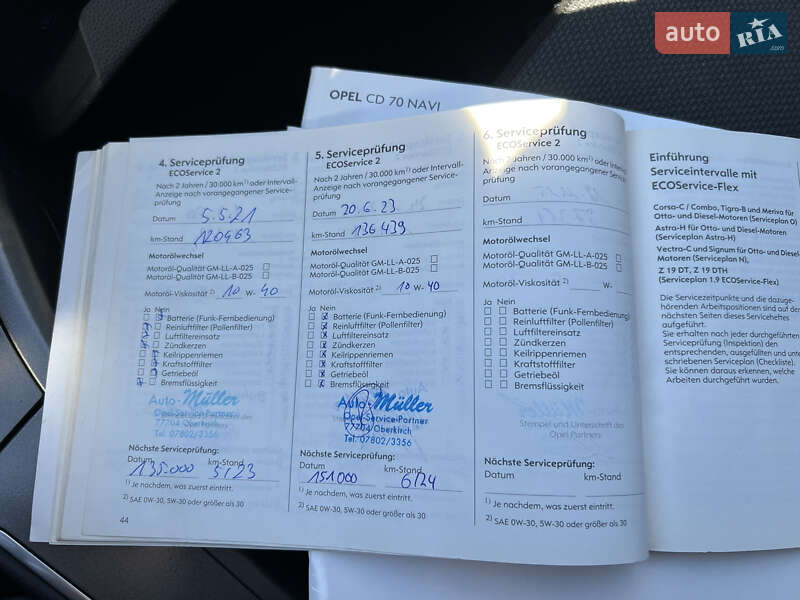 auto RIA .com
OPEL CD 70 NAVI
4. Serviceprüfung
ECOService 2
Nach 2 Jahren / 30.000 km¹⁾ oder Intervall-
Anzeige nach vorangegangener Service-
prüfung
Datum 5.5.21
km-Stand 120463
Motorölwechsel
Motoröl-Qualität GM-LL-A-025 ☐
Motoröl-Qualität GM-LL-B-025 ☐
Motoröl-Viskosität ²⁾ 10 W- 40
Ja Nein
Batterie (Funk-Fernbedienung)
Reinluftfilter (Pollenfilter)
Luftfiltereinsatz
Zündkerzen
Keilrippenriemen
Kraftstofffilter
Getriebeöl
Bremsflüssigkeit
Auto-Müller
Opel-Service-Partner
77704 Oberkirch
Tel. 07802/3356
Nächste Serviceprüfung:
Datum km-Stand
135.000 5/23
¹⁾ Je nachdem, was zuerst eintritt.
²⁾ SAE 0W-30, 5W-30 oder größer als 30
44
5. Serviceprüfung
ECOService 2
Nach 2 Jahren / 30.000 km¹⁾ oder Intervall-
Anzeige nach vorangegangener Service-
prüfung
Datum 20.6.23
km-Stand 136439
Motorölwechsel
Motoröl-Qualität GM-LL-A-025 ☐
Motoröl-Qualität GM-LL-B-025 ☐
Motoröl-Viskosität ²⁾ 10 W- 40
Ja Nein
Batterie (Funk-Fernbedienung)
Reinluftfilter (Pollenfilter)
Luftfiltereinsatz
Zündkerzen
Keilrippenriemen
Kraftstofffilter
Getriebeöl
Bremsflüssigkeit
Auto-Müller
Opel-Service-Partner
77704 Oberkirch
Tel. 07802/3356
Nächste Serviceprüfung:
Datum km-Stand
151000 6/24
¹⁾ Je nachdem, was zuerst eintritt.
²⁾ SAE 0W-30, 5W-30 oder größer als 30
6. Serviceprüfung
ECOService 2
Nach 2 Jahren / 30.000 km¹⁾ oder Intervall-
Anzeige nach vorangegangener Service-
prüfung
Datum
km-Stand
Motorölwechsel
Motoröl-Qualität GM-LL-A-025 ☐
Motoröl-Qualität GM-LL-B-025 ☐
Motoröl-Viskosität ²⁾ W-
Ja Nein
Batterie (Funk-Fernbedienung)
Reinluftfilter (Pollenfilter)
Luftfiltereinsatz
Zündkerzen
Keilrippenriemen
Kraftstofffilter
Getriebeöl
Bremsflüssigkeit
Stempel und Unterschrift des
Opel Partners
Nächste Serviceprüfung:
Datum km-Stand
¹⁾ Je nachdem, was zuerst eintritt.
²⁾ SAE 0W-30, 5W-30 oder größer als 30
Einführung
Serviceintervalle mit
ECOService-Flex
Corsa-C / Combo, Tigra-B und Meriva für
Otto- und Diesel-Motoren (Serviceplan O)
Astra-H für Otto- und Diesel-Motoren
(Serviceplan Astra-H)
Vectra-C und Signum für Otto- und Diesel-
Motoren (Serviceplan N),
Z 19 DT, Z 19 DTH
(Serviceplan 1.9 ECOService-Flex)
Die Servicezeitpunkte und die dazuge-
hörenden Arbeitspositionen sind auf den
nächsten Seiten dieses Serviceheftes
aufgeführt.
Sie erhalten nach jeder durchgeführten
Serviceprüfung (Inspektion) den
entsprechenden, ausgefüllten und unter-
schriebenen Serviceplan (Checkliste).
Sie können daraus erkennen, welche
Arbeiten durchgeführt wurden.